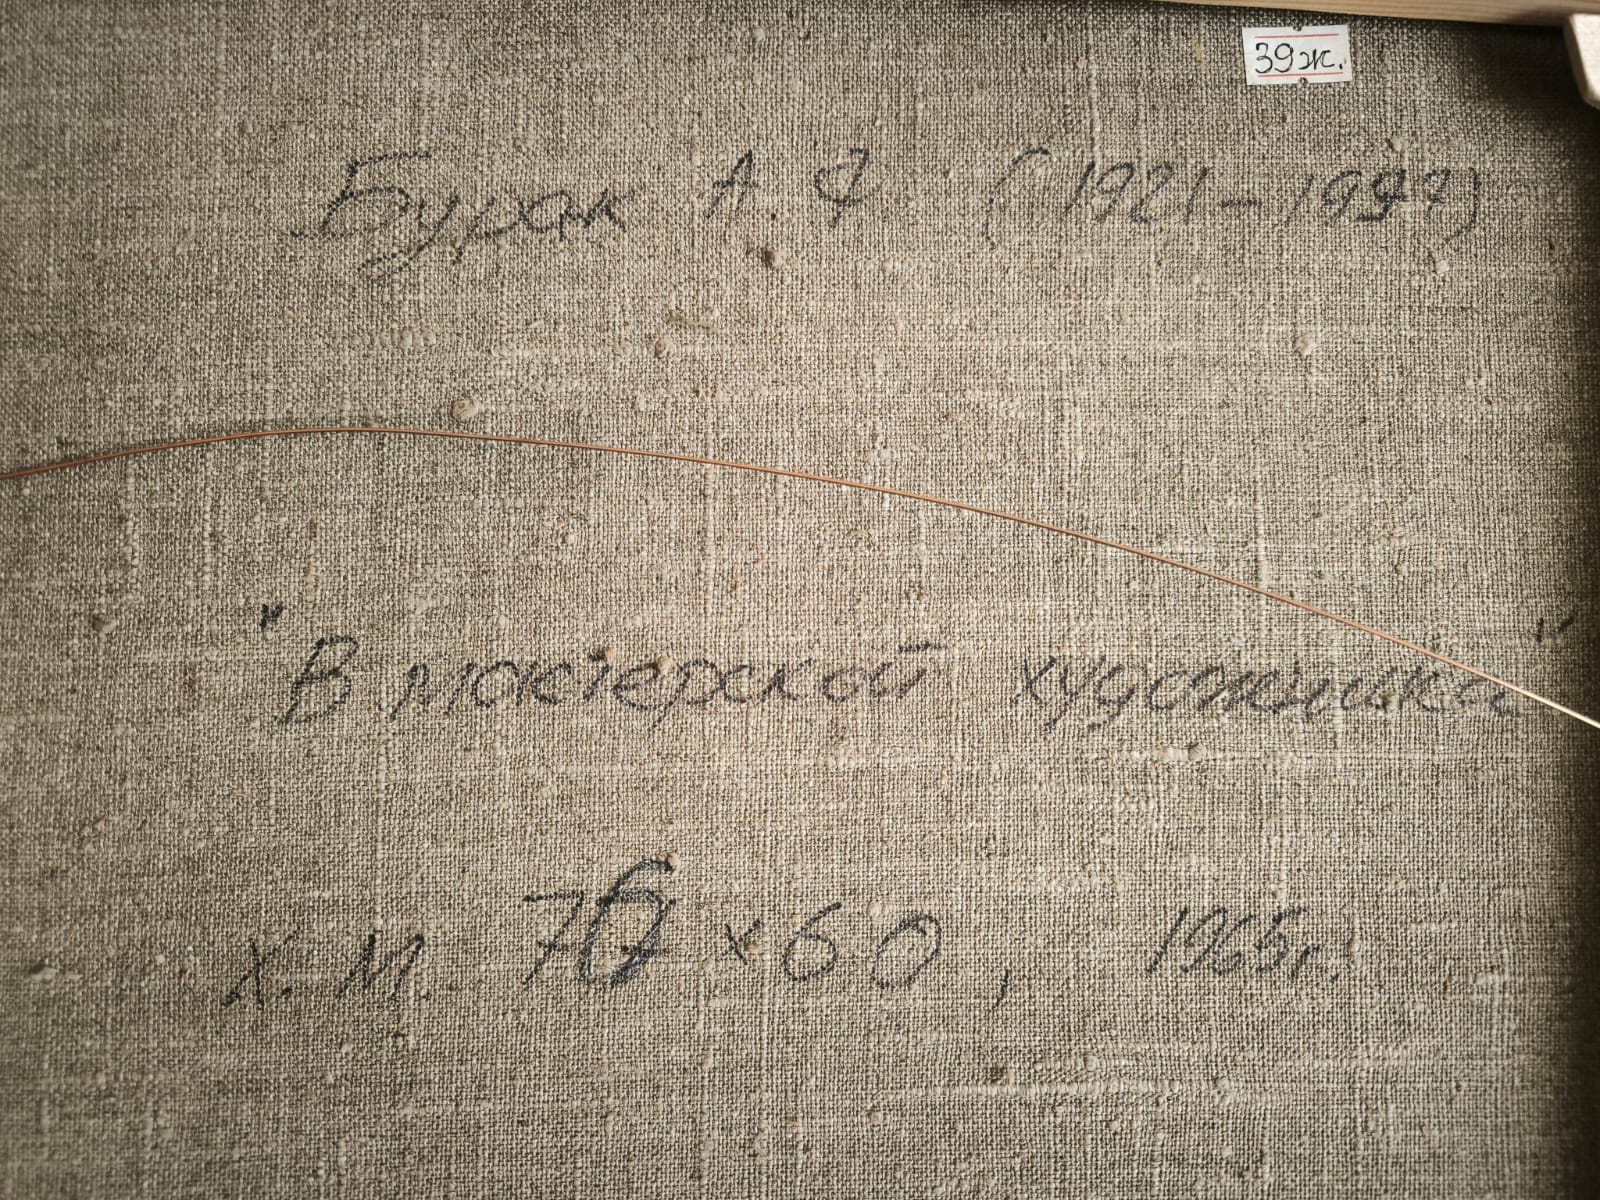 39ж.
Бурак А. Ф (1921-1997)
"В мастерской художника"
х. м 76 х 60, 1965г.